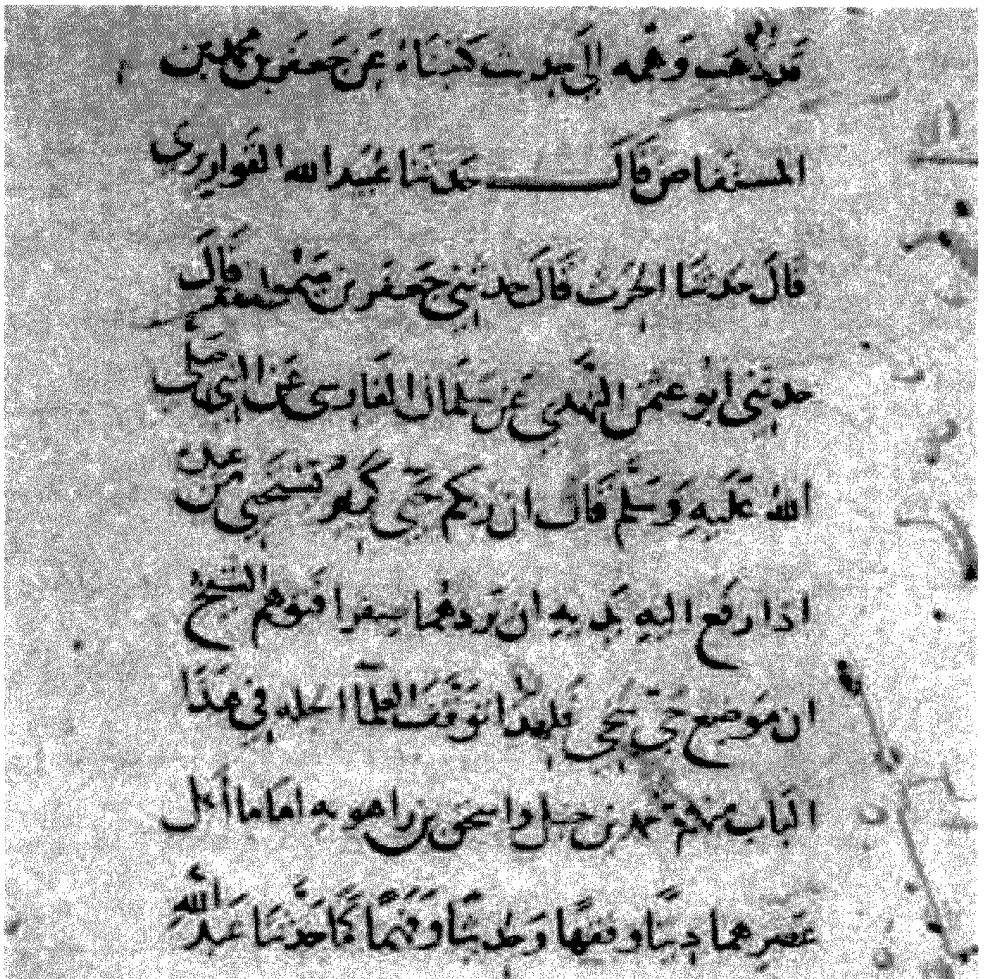 قد ذهب وهمه إلى حدث كتبناه عن جعفر بن محمد بن
المستفاض قال حدثنا عبيد الله القواريري
قال حدثنا الحرث قال حدثني جعفر بن ميمون قال
حدثني ابو عثمن النهدي عن سلمان الفارسي عن النبي صلى
الله عليه وسلم قال ان ربكم حيي كريم يستحيي من عبده
اذا رفع اليه يديه ان يردهما صفرا فتوهم الشيخ
ان موضع حيي يحيى فلهذا توقف العلما الجله في هذا
الباب منهم احمد بن حنبل واسحق بن راهويه اماما أهل
عصرهما دينا وفقها وحديثا وفهما كما حدثنا عبد الله